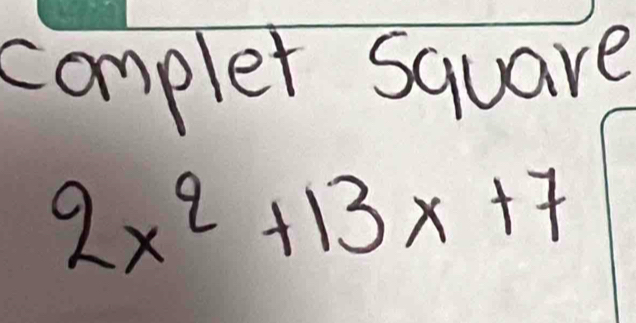 complet Square
2x² +13x +7